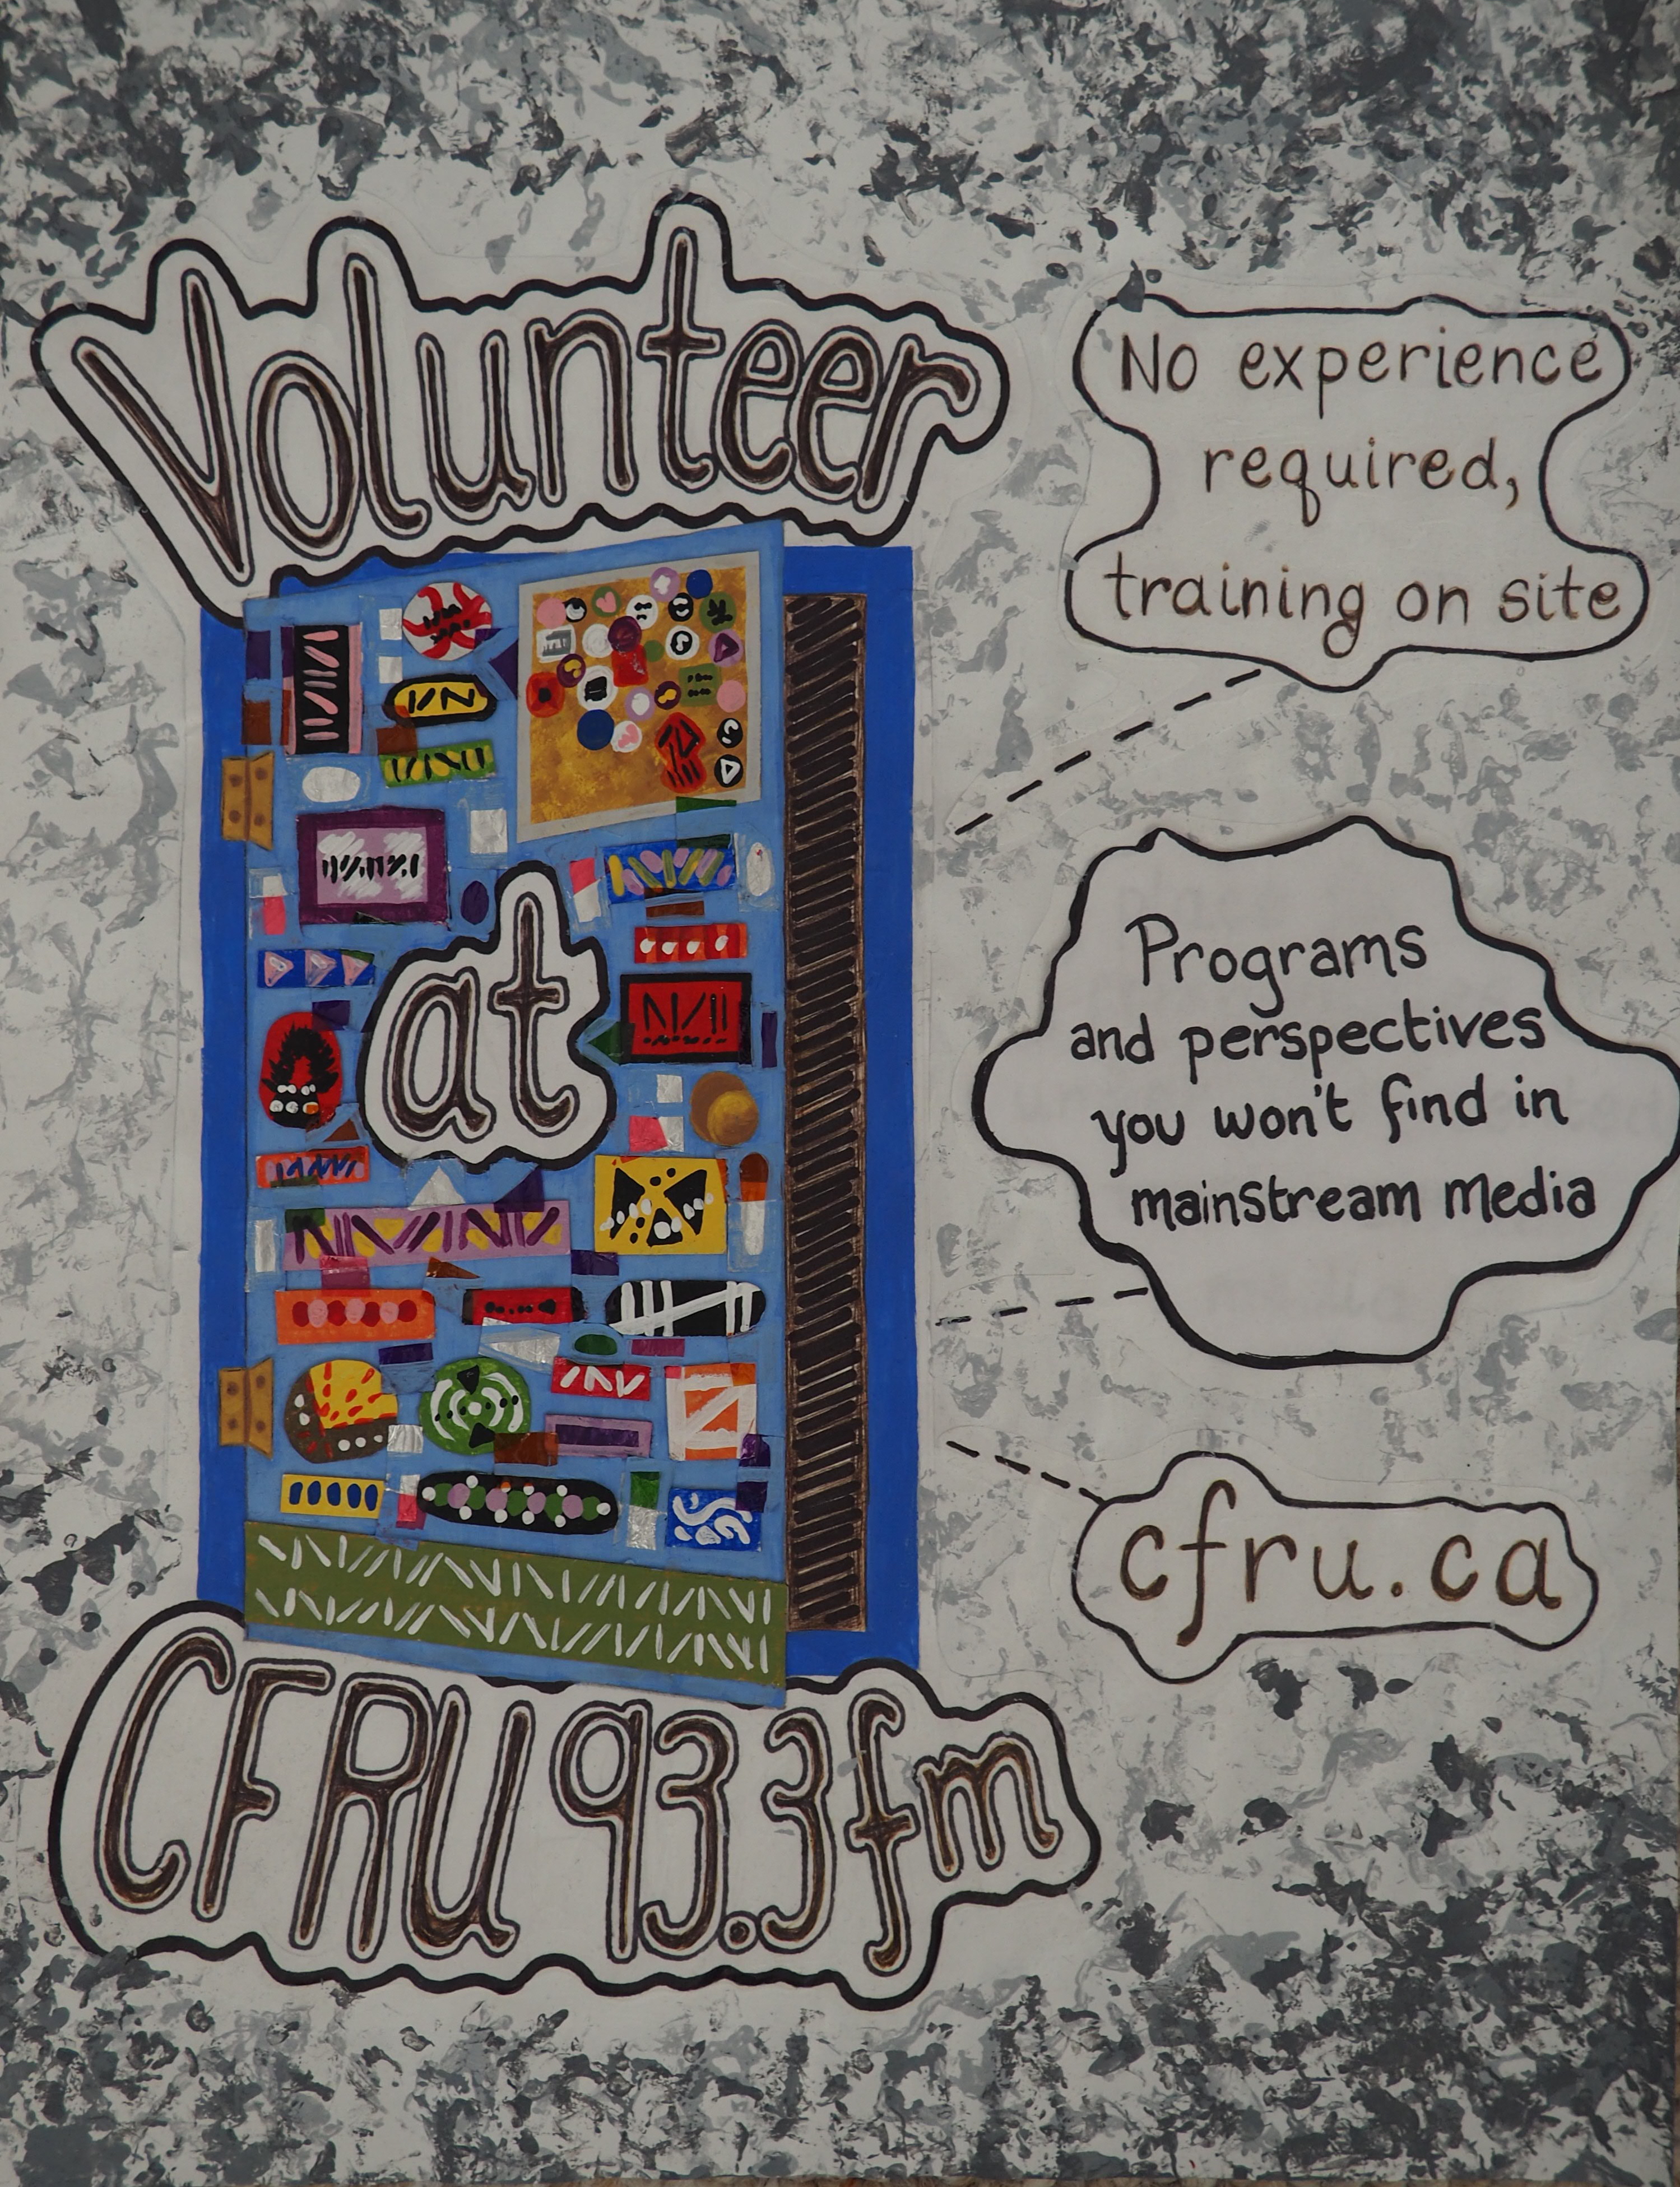 Volunteer
at
CFRU 93.3fm
No experience
required,
training on site
Programs
and perspectives
you won't find in
mainStream media
cfru.ca